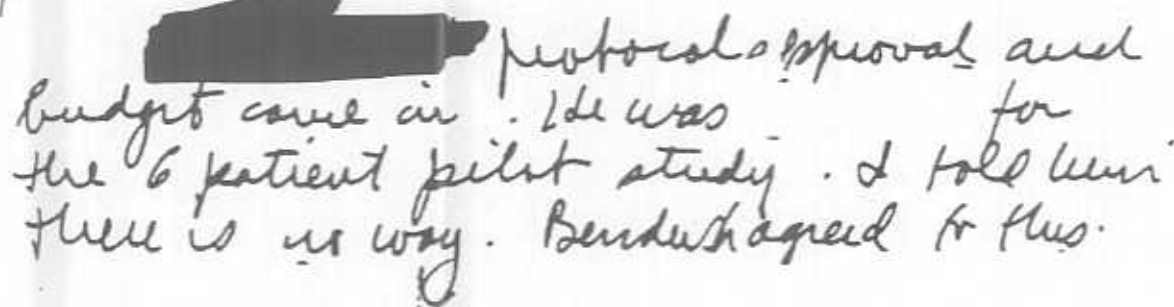 protocol approval and
budget came in. He was for
the 6 patient pilot study. I told him
there is no way. agreed to this.